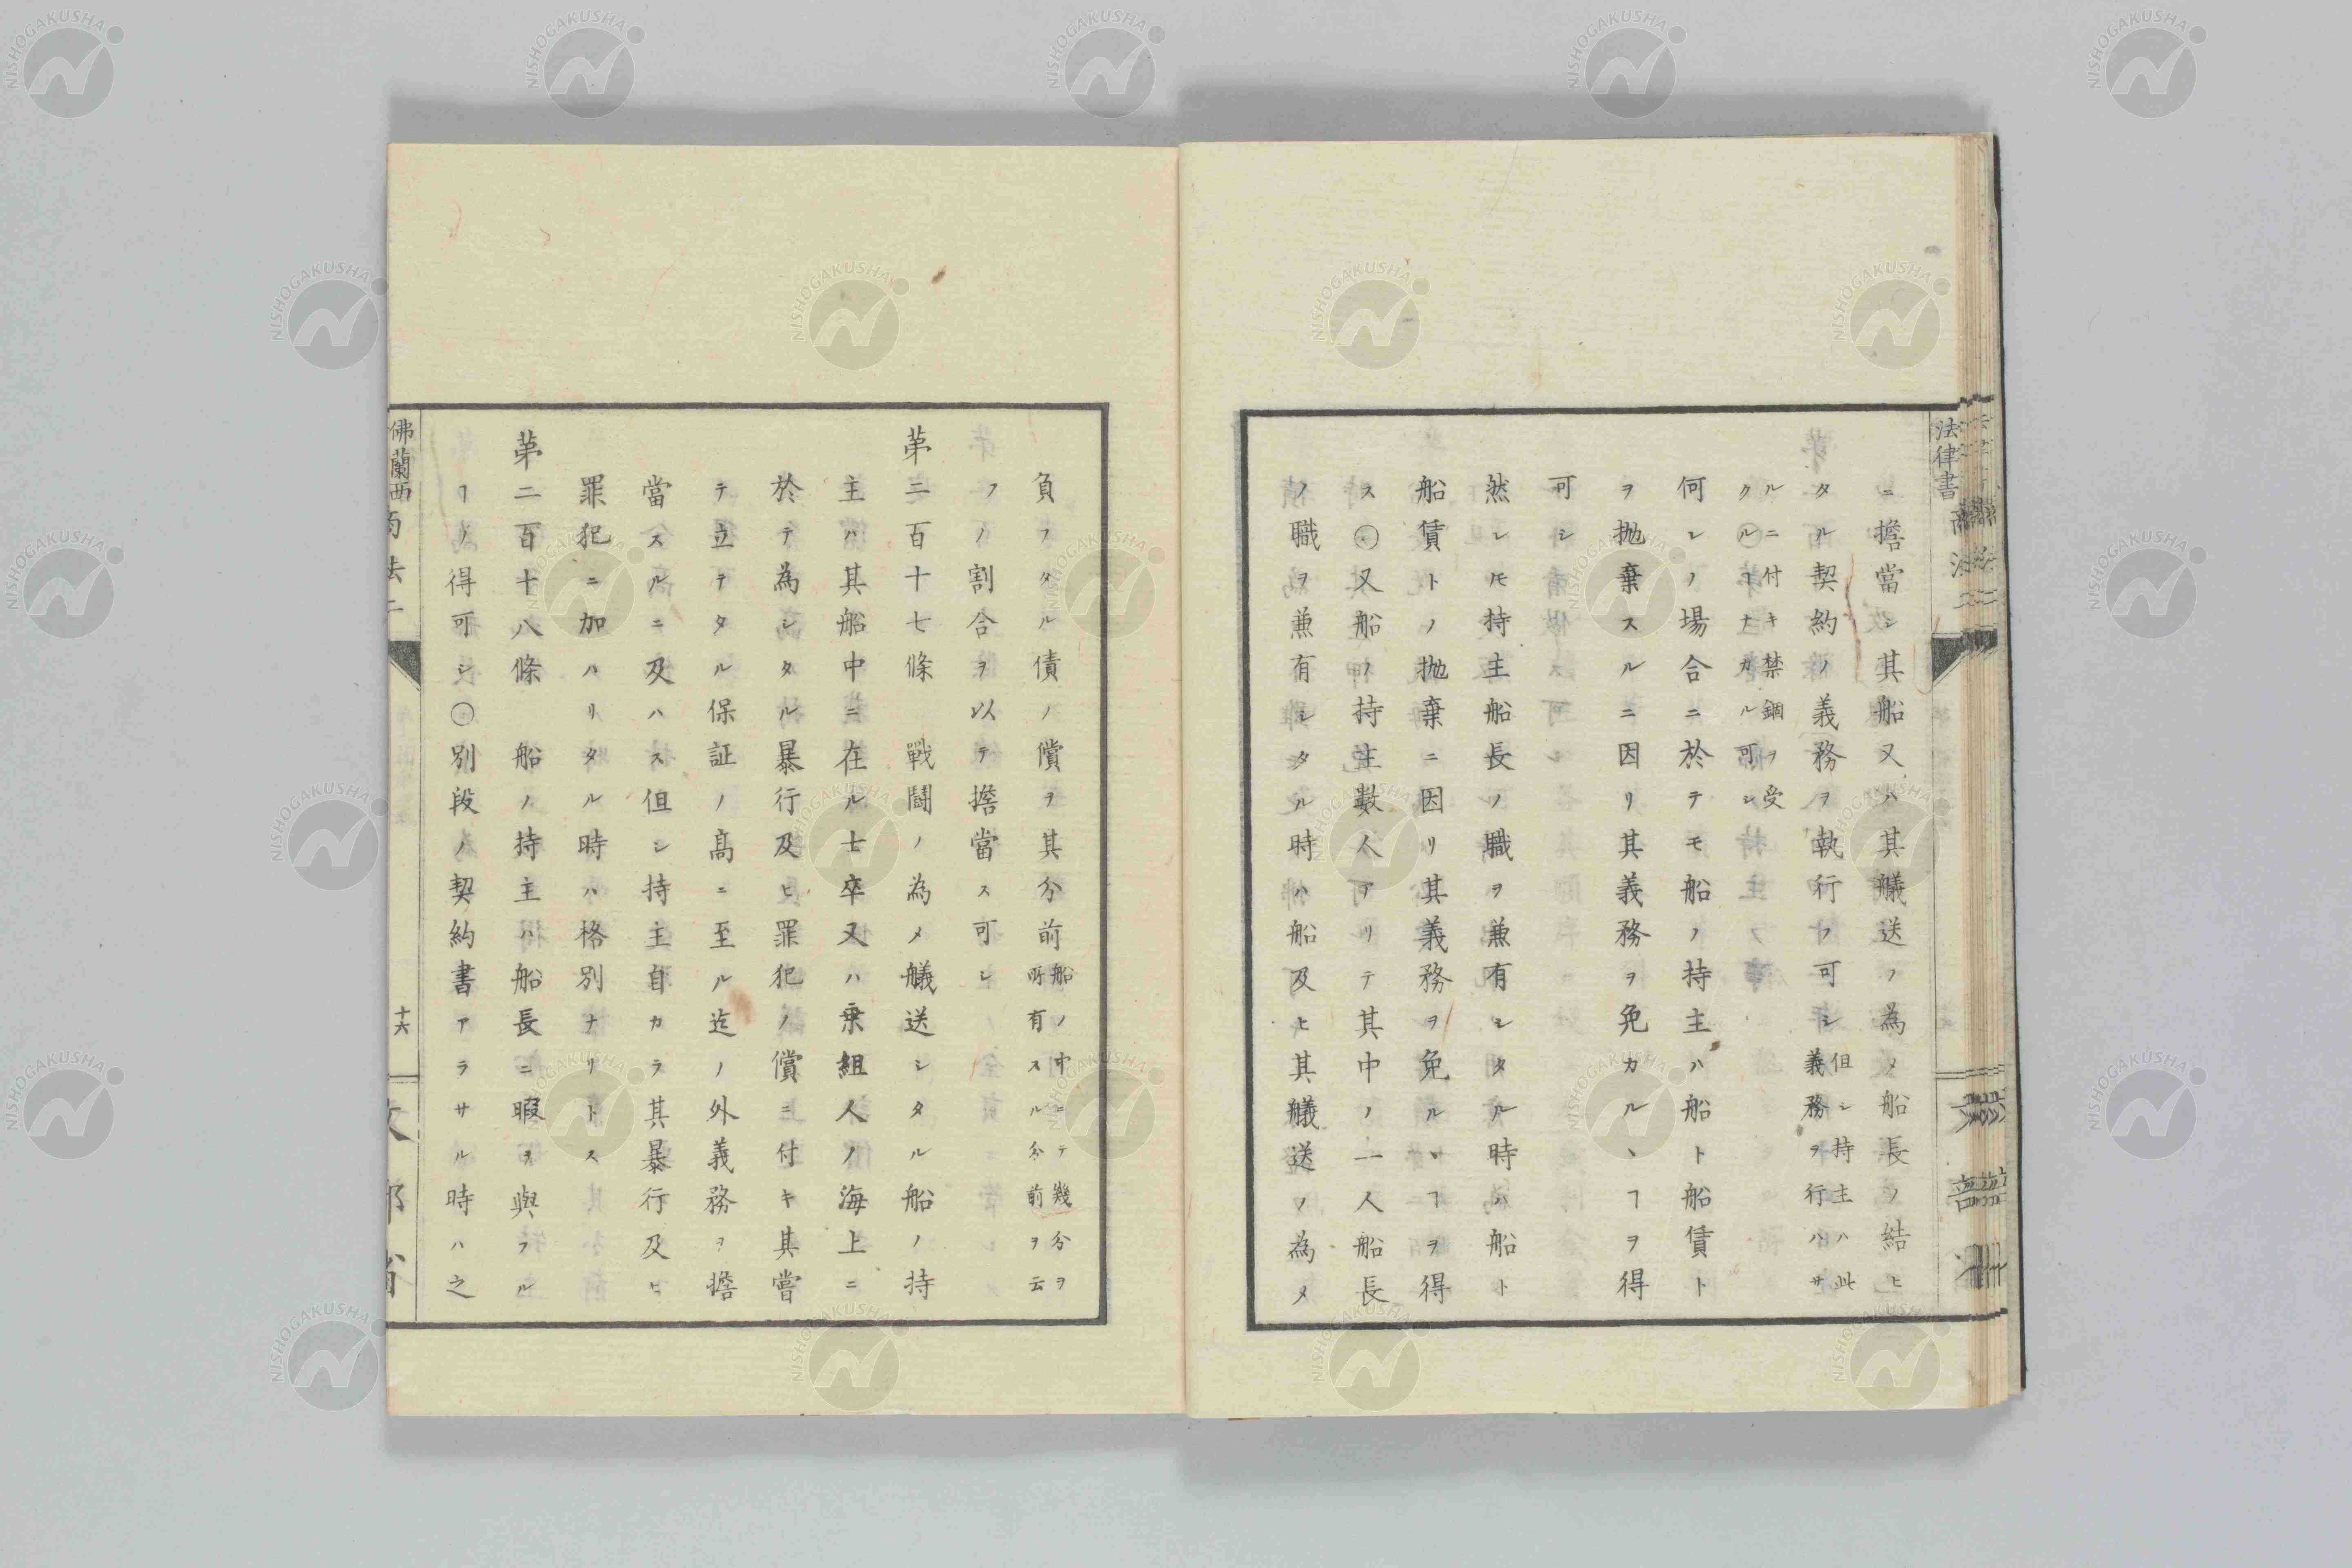 ニ擔當シ其船又ハ其艤送ノ為メ船長ノ結ヒ
タル契約ノ義務ヲ執行フ可シ但シ持主ハ此義務ヲ行ハサ
ルニ付キ禁錮ヲ受クルヿナカル可シ
何レノ場合ニ於テモ船ノ持主ハ船ト船賃ト
ヲ抛棄スルニ因リ其義務ヲ免カルヽヿヲ得
可シ
然レ𪜈持主船長ノ職ヲ兼有シタル時ハ船ト
船賃トノ抛棄ニ因リ其義務ヲ免ルヽヿヲ得
ス○又船ノ持主數人アリテ其中ノ一人船長
ノ職ヲ兼有シタル時ハ船及ヒ其艤送ノ為メ
法律書
負フタル債ノ償ヲ其分前船ノ中ニテ幾分ヲ所有スル分前ヲ云
フノ割合ヲ以テ擔當ス可シ
第二百十七條 戰鬪ノ為メ艤送シタル船ノ持
主ハ其船中ニ在ル士卒又ハ乗組人ノ海上ニ
於テ為シタル暴行及ヒ罪犯ノ償ニ付キ其嘗
テ立テタル保証ノ高ニ至ル迄ノ外義務ヲ擔
當スルニ及ハス但シ持主自カラ其暴行及ヒ
罪犯ニ加ハリタル時ハ格別ナリトス
第二百十八條 船ノ持主ハ船長ニ暇ヲ與フル
ヿノ得可シ○別段ノ契約書アラサル時ハ之
佛蘭西商法二
十六
文部省
NISHOGAKUSHA